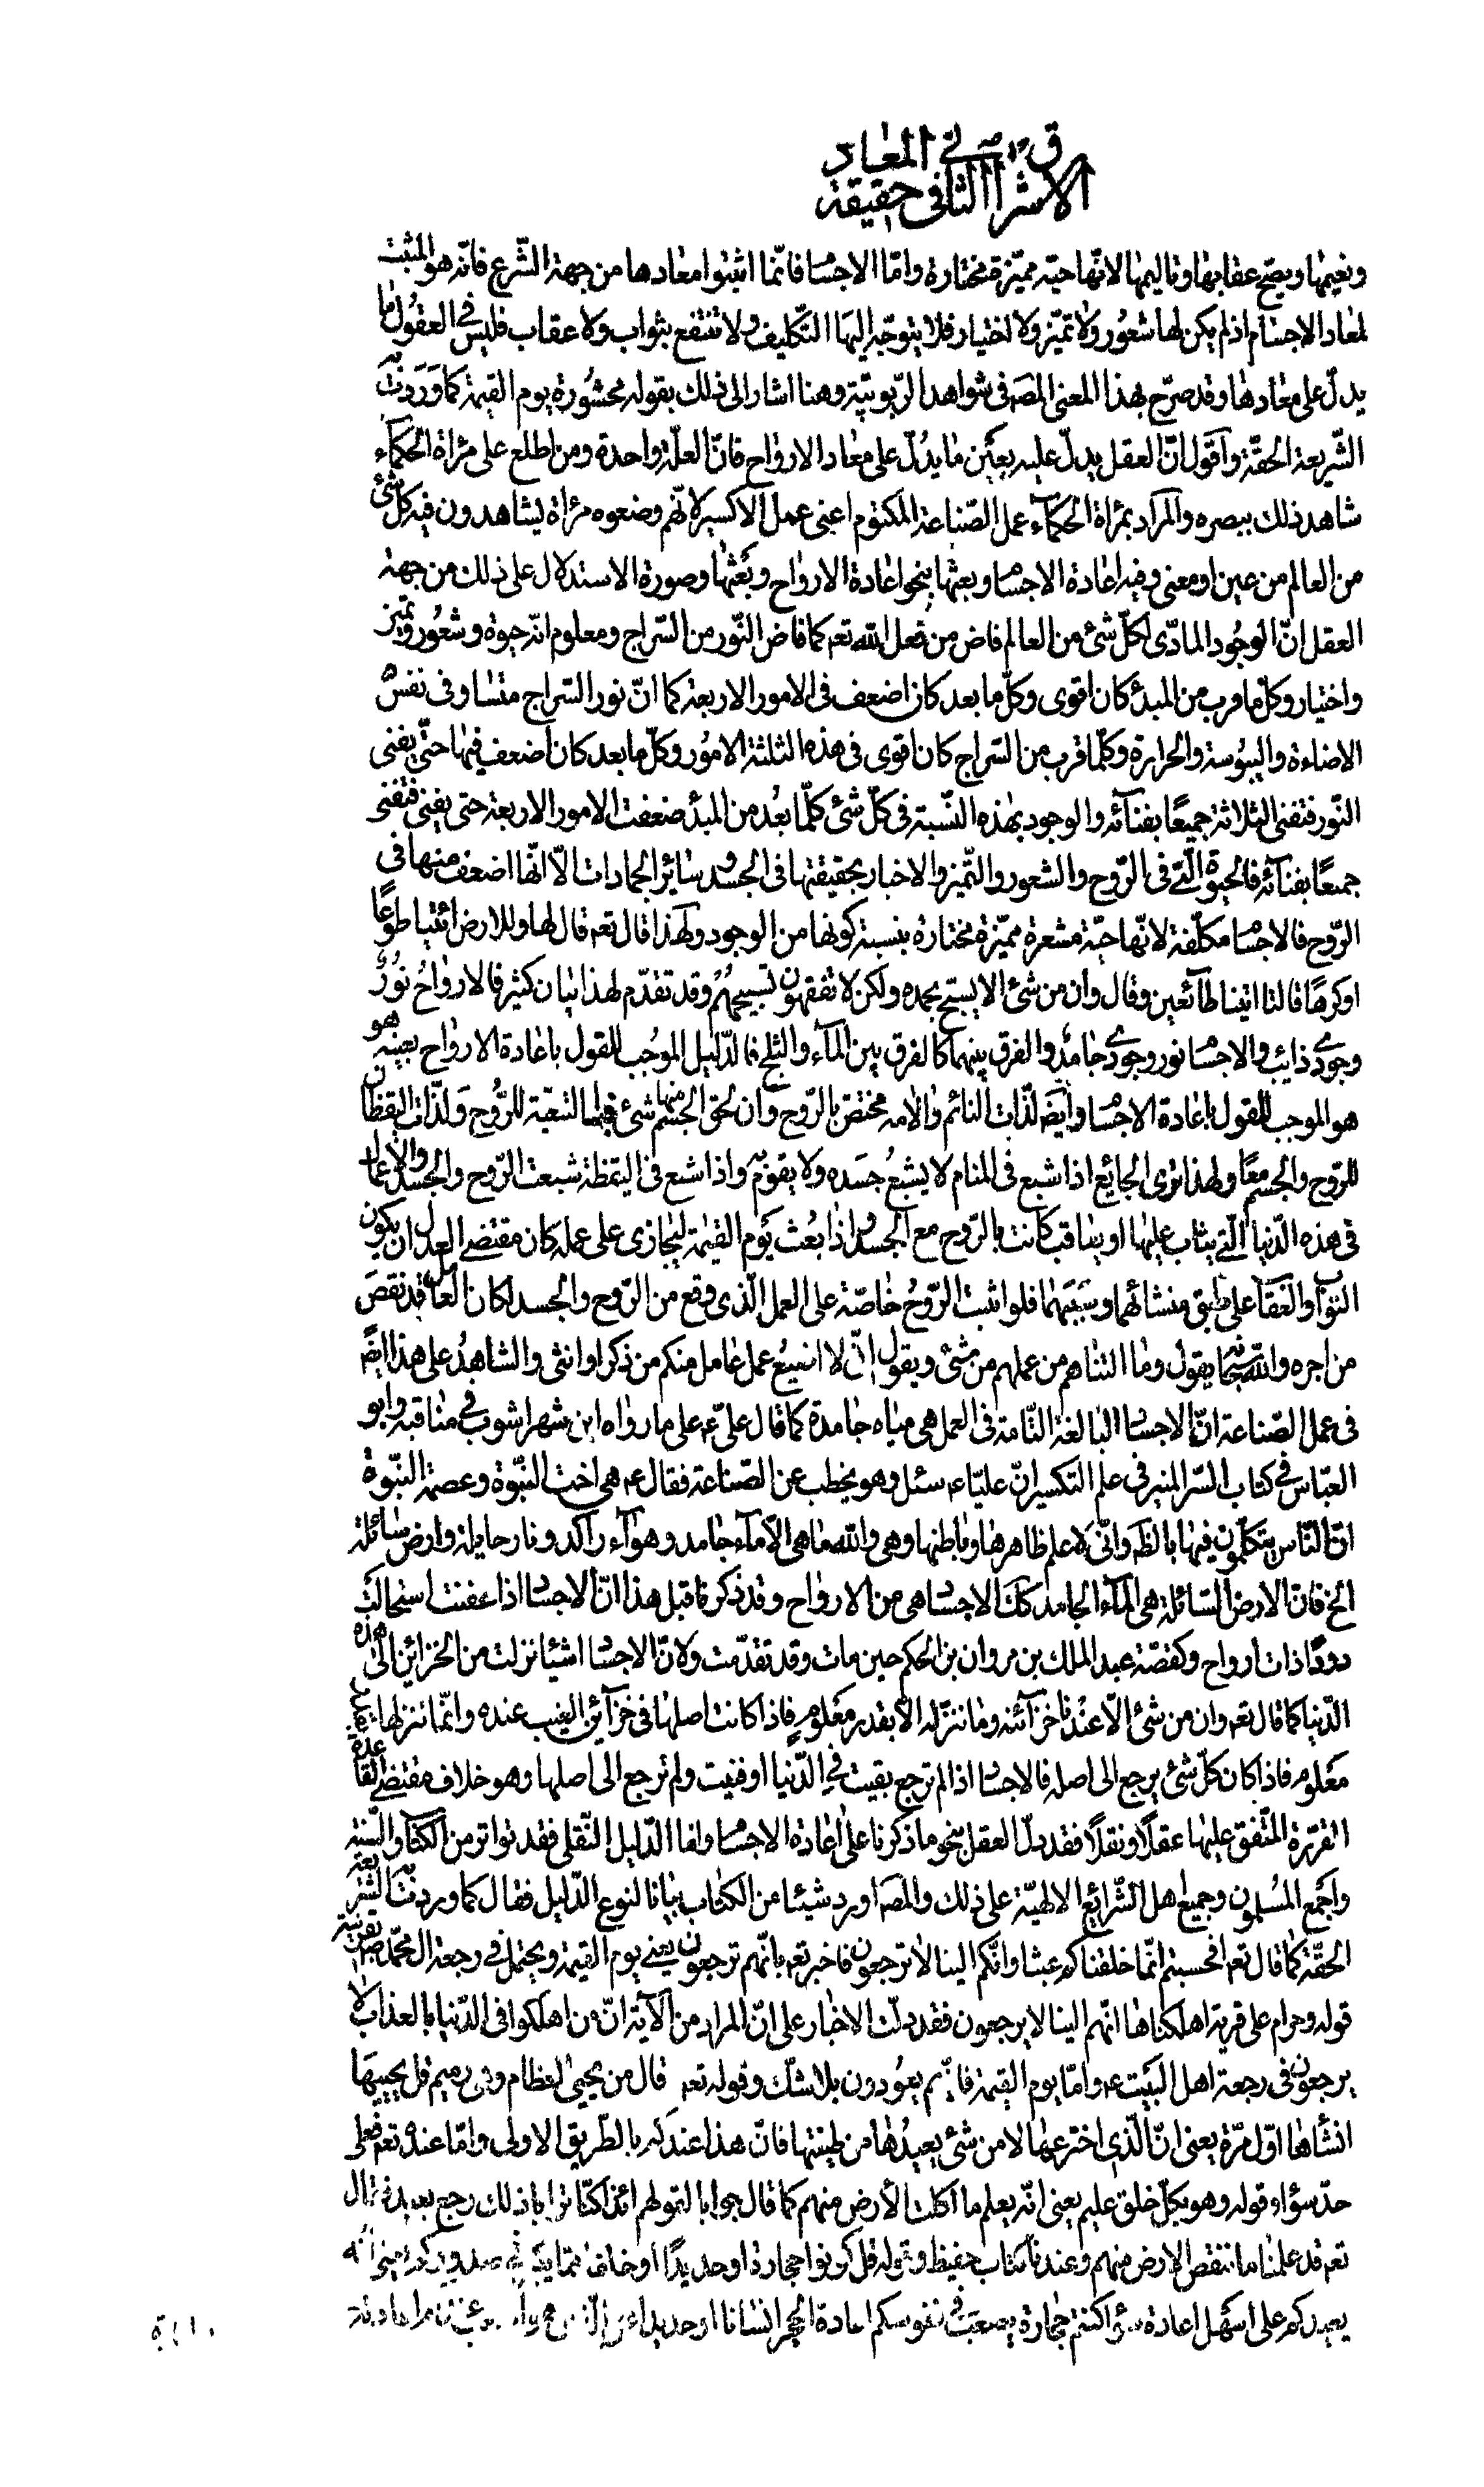 الاشراق الثانى فى حقيقة المعاد
ونعيمها ويصحّ عقابها وتاليمها لانّها حيّة مميّزة مختارة وامّا الاجسا فانّما اثبتوا معادها من جهة الشّرع فانّه هو المثبت
لمعاد الاجسام اذ لم يكن لها شعُور ولا تميّز ولا اختيار فلا يتوجّه اليها التّكليف ولا تنتفع بثواب ولا عقاب فليس فى العقُول ما
يدلّ على معادها وقد صرّح بهذا المعنى المصَه فى شواهد الرّبوبيّة وهنا اشار الى ذلك بقوله محشُورة يوم القيمة كما وَرَدَت به
الشّريعة الحقّة وأقول انّ العقل يدلّ عليه بعَيْن ما يدُلّ على معاد الارواح فانّ العلّة واحدة ومن اطلع على مرْاة الحكمآء
شاهد ذلك ببصره والمراد بمرْاة الحكمآء عمل الصّناعة المكتوم اعنى عمل الاكسير لانّهم وضعوه مرْاة يشاهدون فيه كل شئ
من العالم من عين او معنى وفيه اعادة الاجسا وبعثها بنحو اعادة الارواح وبَعثها وصورة الاستدلال على ذلك من جهة
العقل انّ الوجُود المادّى لكلّ شئ من العالم فاض من فعل اللّه تعه كما فاض النّور من السّراج ومعلوم انّه حيوة وشعُور وتميز
واختيار وكلّ ما قرب من المبدء كان اقوى وكلّ ما بعد كان اضعف فى الامور الاربعة كما انّ نور السّراج متساو فى نفسه
الاضاءة واليبُوسة والحرارة وكلّما قرب من السّراج كان اقوى فى هذه الثلثة الامُور وكلّ ما بعد كان اضعف فيها حتّى يفنى
النّور فتفنى الثلاثة جميعًا بفنآئه والوجود بهذه النّسبة فى كلّ شئ كلّما بعُد من المبدء ضعفت الامور الاربعة حتى يفنى فتفنى
جميعًا بفنآئه فالحيوة الّتى فى الرّوح والشعور والتّميز والاختيار بحقيقتها فى الجسد وسائر الجمادات الّا انّها اضعف منها فى
الرّوح فالاجسا مكلّفة لانّها حيّة مشعرة مميّزة مختارة بنسبة كونها من الوجود ولهذا قال تعه فقال لها وللارض ائتيا طوعًا
او كرهًا قالتا اتينا طآئعين وقال وان من شئ الا يسبّح بحمده ولكن لا تفقهون تسبيحهُم وقد تقدّم لهذا بيان كثير فالارواحُ نُورٌ
وجودىّ ذائب والاجسا نور وجودىّ جامدٌ والفرق بينهما كالفرق بين المآء والثلج فالدّليل الموُجب للقول باعادة الارواح بعينه هو
هو الموجب للقول باعادة الاجسا وايضَه لذّات النائم والامه مختصّ بالرّوح وان لحق الجسم منها شئ فبالتبعيّة للرُّوح وَلذّات اليقظان
للرّوح والجسم معًا ولهذا ترى الجايع اذا شبع فى المنام لا يشبعُ جسَده ولا يقوّيه واذا شبع فى اليقظة شبعت الرّوح والجسد والاعمال
فى هذه الدّنيا الّتى يثاب عليها او يعاقب كانت بالرّوح مع الجسد واذا بُعث يَوم القيٰمة ليجازى على عمله كان مقتضى العدل ان يكون
الثواب والعقاب على طبق منشائهما وسَبَبهما فلو اثيبت الرّوحُ خاصّة على العمل الّذى وقع من الرّوح والجسد لكان العامل قد نقصَ
من اجره واللّه سبحانه يقول وما التناهم من عملهم من شئ ويقول انّى لا اضيعُ عمل عامل منكم من ذكر او انثى والشاهدُ على هذا ايضًا
فى عمل الصّناعة انّ الاجساد البالغة التّامة فى العمل هى مياه جامدة كما قال علىّ ع على ما رواه ابن شهراشوب فى مناقبه وابو
العبّاس فى كتاب السّر المنير فى علم التكسير انّ عليّا ع سئل وهو يخطب عن الصّناعة فقال ع هى اخت النبّوة وعصمة النبّوة
انّ النّاس يتكلّمون فيها بالظّه وانّى لاعلم ظاهرها وباطنها وهى واللّه ما هى الّا مآء جامد وهوآء راكد ونار حايلة وارض سائلة
الخ فانّ الارض السّائلة هى المآء الجامد كك الاجسا هى من الارواح وقد ذكرنا قبل هذا انّ الاجسا اذا عفنت استحالت
دودًا ذات ارواح وكقصّة عبد الملك بن مروان بن الحكم حين مات وقد تقدّمت ولانّ الاجسا اشيا نزلت من الخزائن الى هذه
الدّنيا كما قال تعه وان من شئ الّا عنْدنا خزآئنه وما ننزّله الّا بقدر معَلوم فاذا كانت اصلها فى خزآئن الغيب عنده وانّما ننزلها
معَلوم فاذا كان كلّ شئ يرجع الى اصله فالاجساد اذا لم ترجع بقيت فى الدّنيا او فنيت ولم ترجع الى اصلها وهو خلاف مقتضى القاعدة
المقرّرة المتّفق عليها عقلًا ونقلًا فقد دلّ العقل بنحو ما ذكرنا على اعادة الاجسا وامّا الدّليل النّقلى فقد تواتر من الكتاب والسّنّة
واجمَع المُسلمون وجميع اهل الشّرائع الالهيّة على ذلك والمصَه اورد شيئا من الكتاب بيانا لنوع الدّليل فقال كما وردت به الشّريعة
الحقّة كما قال تعه افحسبتم انّما خلقناكم عبثا وانّكم الينا لا ترجعون فاخبر تعه بانّهم ترجعون يعنى يوم القيمة ويحتمل فى رجعة ال محمّد ص بقرينة
قوله وحرام على قرية اهلكناها انّهم الينا لا يرجعون فقد دلّت الاخبار على انّ المراد من الآية انّ من اهلكوا فى الدّنيا بالعذاب لا
يرجعون فى رجعة اهل البَيْت ع وامّا يوم القيمة فانّهم يعوُدون بلا شكّ وقوله تعه قال من يحيى العظام وهى رميم قل يحييها
انشأها اوّل مرّة يعنى انّ الّذى اخترعها لا من شئ يعيدُها من طينتها فانّ هذا عندكم بالطّريق الاولى وامّا عنده تعه فعلى
حدّ سوآء وقوله وهو بكلّ خلق عليم يعنى انّه يعلم ما اكلت الأرض منهم كما قال جوابا لقولهم ائذا كنّا ترابا ذلك رجع بعيد قال
تعه قد علمنا ما تنقص الارض منهم وعندنا كتاب حفيظ وقوله قل كونوا حجارة او حديدًا او خلقا ممّا يكبر فى صدوركم يعنى انّه
يعيدكم على اسَهل اعادة كنتم حجارة يصعبُ فى نفوسكم اعادة الحجر انسانا او حديدا